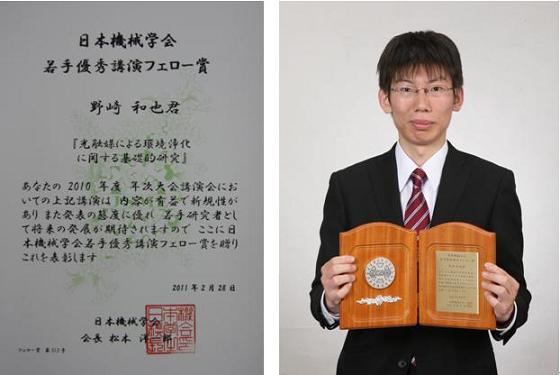 日本機械学会
若手優秀講演フェロー賞
野崎 和也君
『光触媒による環境浄化
に関する基礎的研究』
あなたの2010年度 年次大会講演会にお
いての上記講演は 内容が有益で新規性が
あり また発表の態度に優れ 若手研究者とし
て将来の発展が期待されますので ここに日
本機械学会若手優秀講演フェロー賞を贈り
これを表彰します
2011年2月28日
日本機械学会
会長 松本 洋一郎
フェロー賞 第